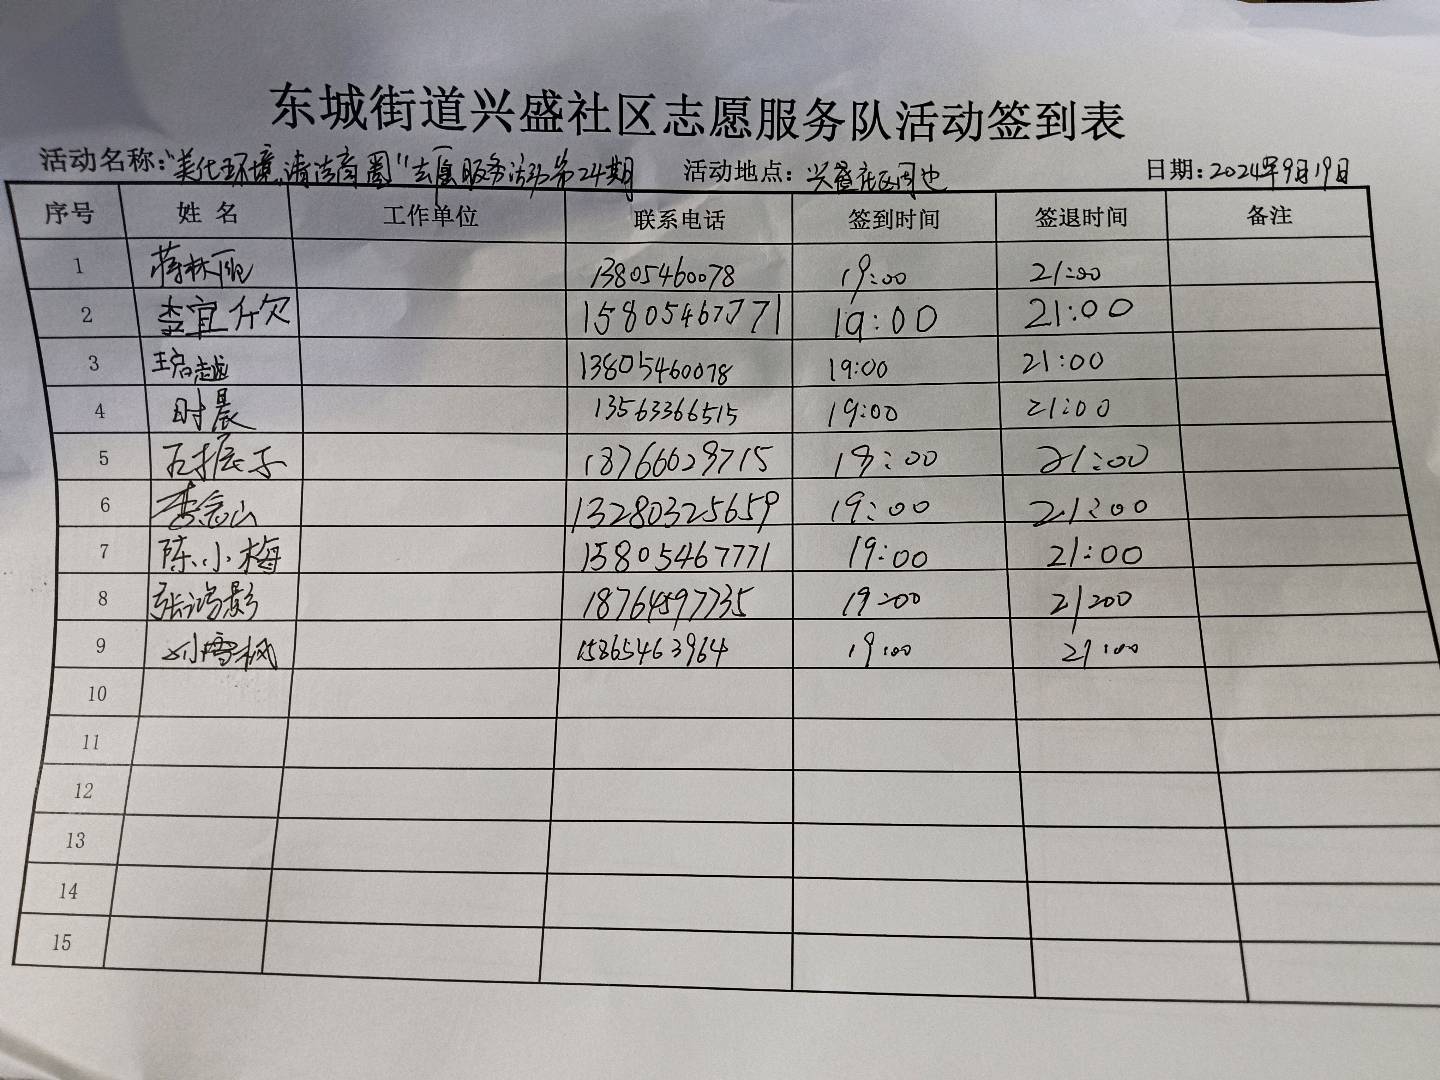 东城街道兴盛社区志愿服务队活动签到表
活动名称:“美化环境,清洁商圈”志愿服务活动第24期 活动地点:兴盛社区周边 日期:2024年9月19日
序号 姓名 工作单位 联系电话 签到时间 签退时间 备注
1 13805460078 19:00 21:00
2 李宜欣 15805467771 19:00 21:00
3 王启越 13805460078 19:00 21:00
4 时晨 13563366515 19:00 21:00
5 18766629715 19:00 21:00
6 李念山 13280325659 19:00 21:00
7 陈小梅 15805467771 19:00 21:00
8 张鸿影 18764597735 19:00 21:00
9 刘雪枫 15865463964 19:00 21:00
10
11
12
13
14
15